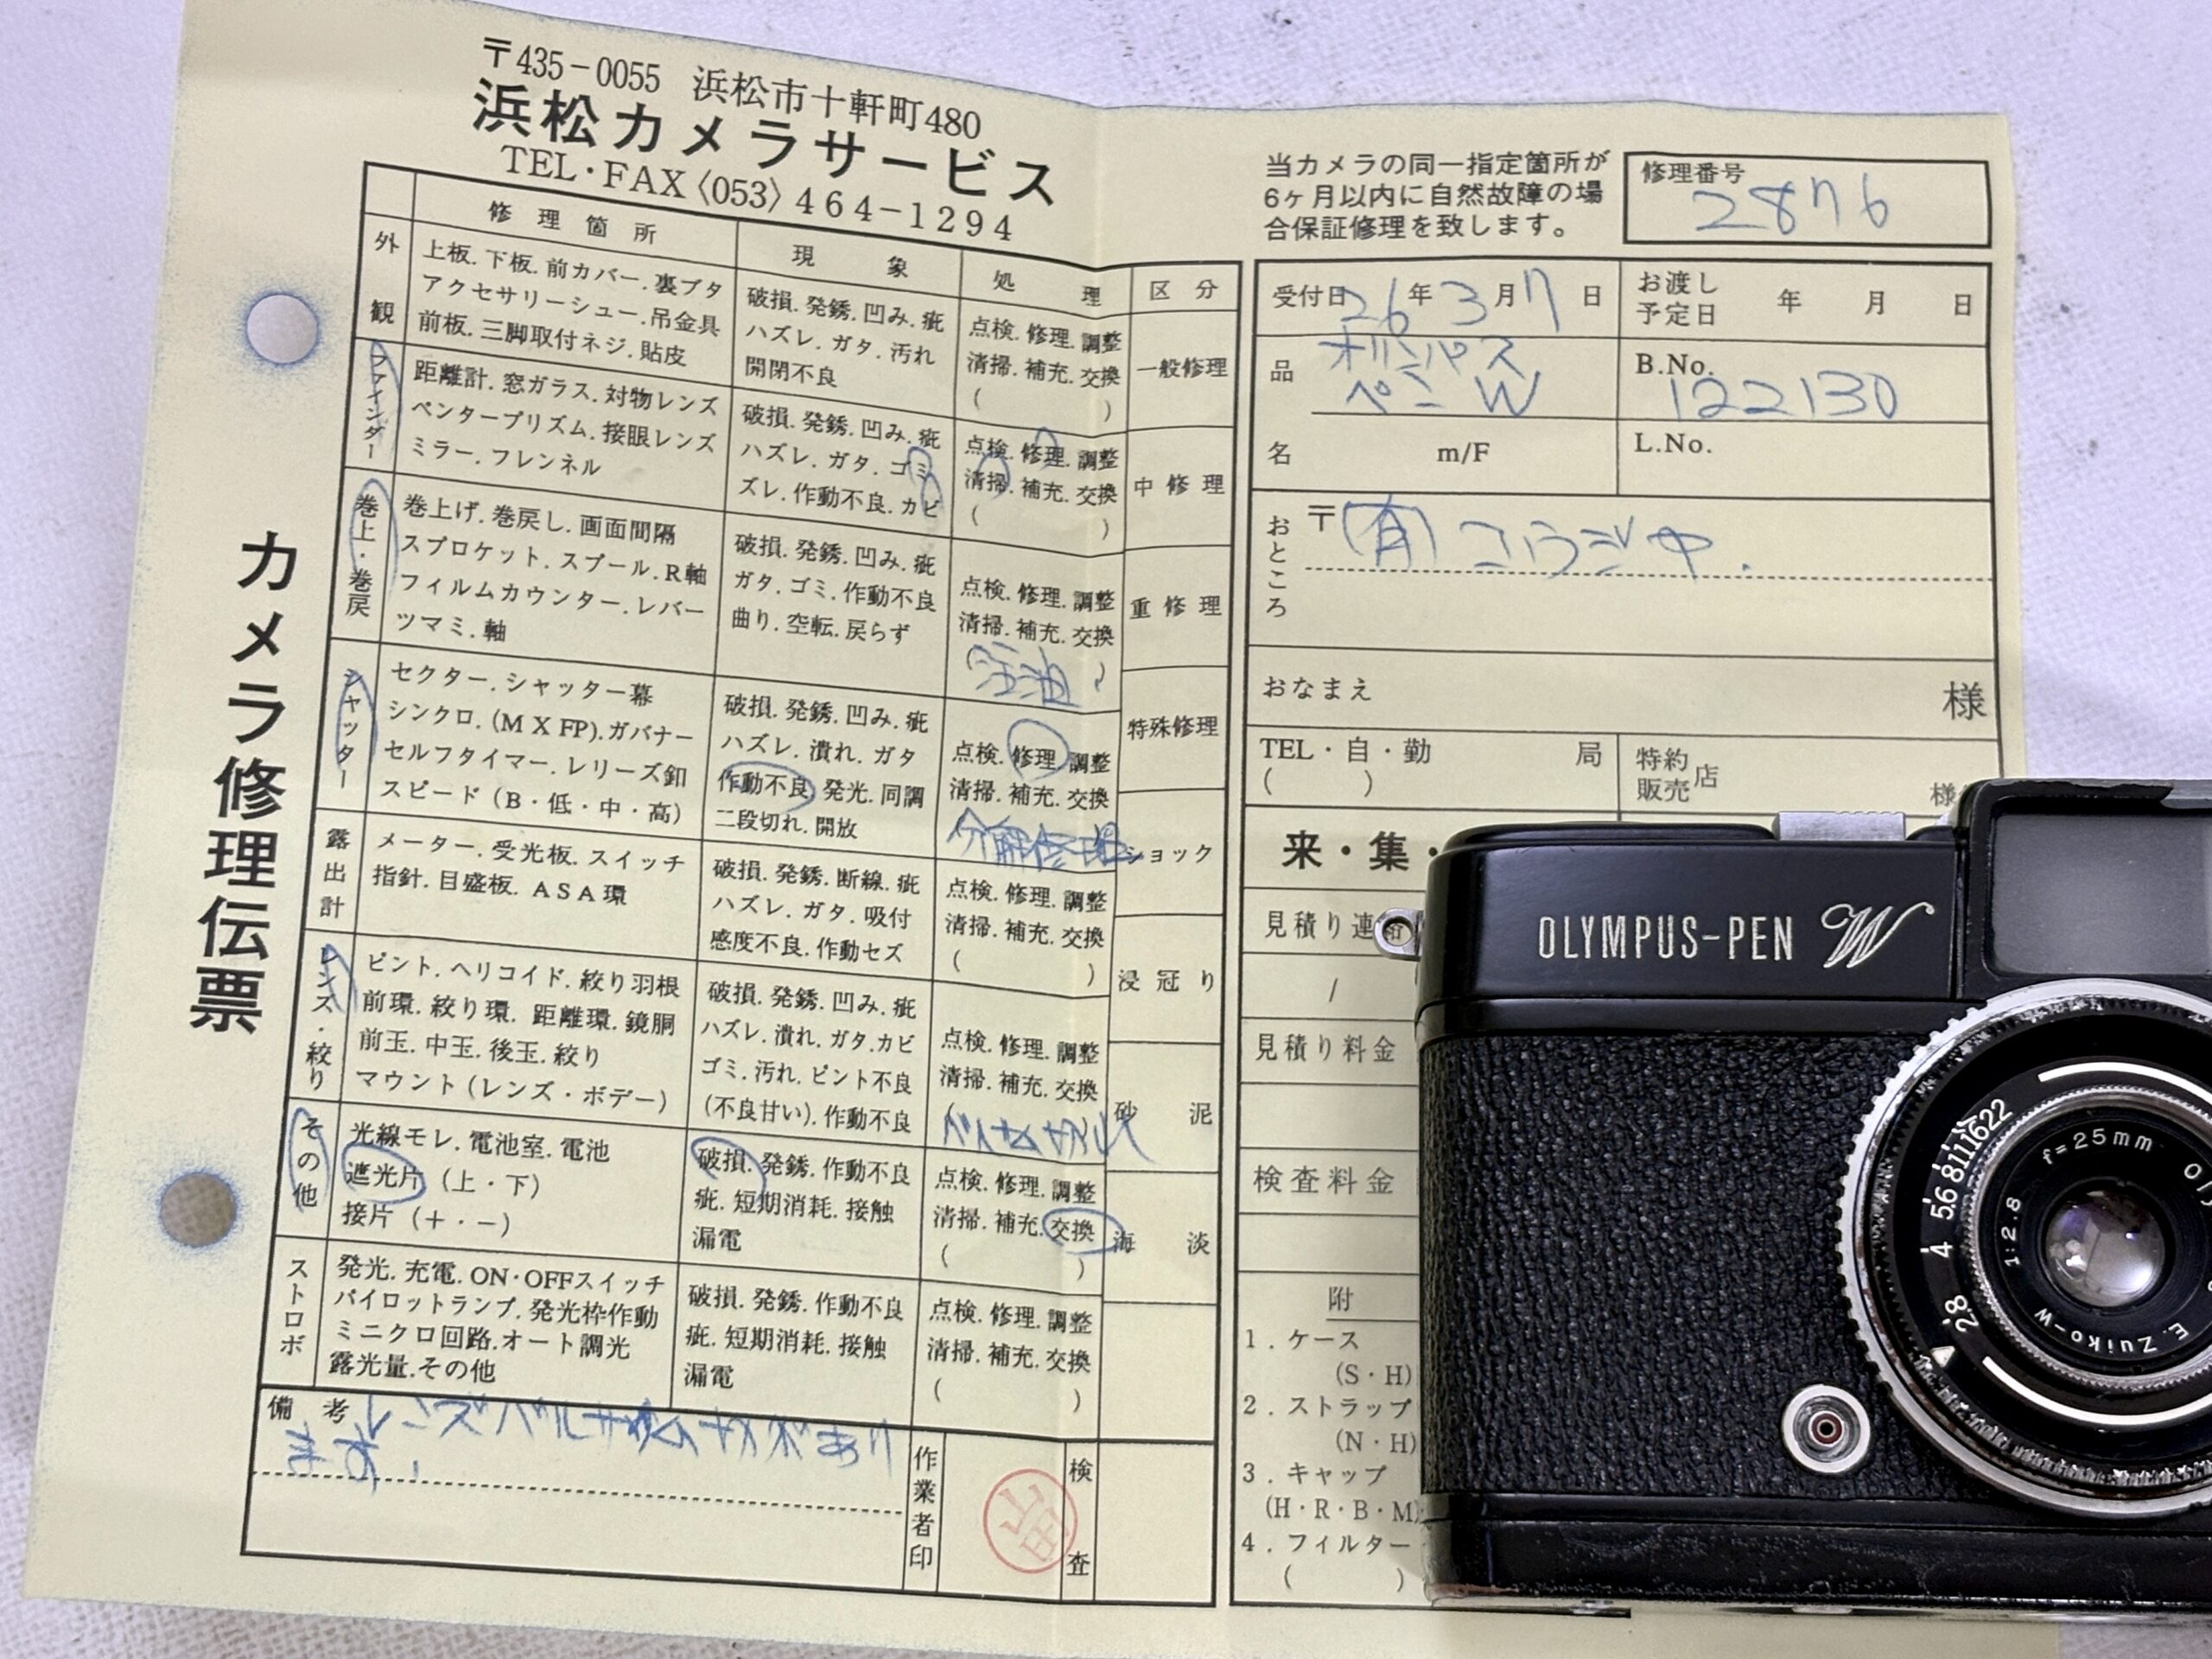 〒435-0055 浜松市十軒町480
浜松カメラサービス
TEL・FAX〈053〉464-1294
カメラ修理伝票
修理箇所 現象 処理 区分
外観
上板. 下板. 前カバー. 裏ブタ
アクセサリーシュー. 吊金具
前板. 三脚取付ネジ. 貼皮
破損. 発銹. 凹み. 疵
ハズレ. ガタ. 汚れ
開閉不良
点検. 修理. 調整
清掃. 補充. 交換
( )
ファインダー
距離計. 窓ガラス. 対物レンズ
ペンタープリズム. 接眼レンズ
ミラー. フレンネル
破損. 発銹. 凹み. 疵
ハズレ. ガタ. ゴミ
ズレ. 作動不良. カビ
点検. 修理. 調整
清掃. 補充. 交換
( )
巻上・巻戻
巻上げ. 巻戻し. 画面間隔
スプロケット. スプール. R軸
フィルムカウンター. レバー
ツマミ. 軸
破損. 発銹. 凹み. 疵
ガタ. ゴミ. 作動不良
曲り. 空転. 戻らず
点検. 修理. 調整
清掃. 補充. 交換
(注油)
シャッター
セクター. シャッター幕
シンクロ. (M X FP). ガバナー
セルフタイマー. レリーズ釦
スピード (B・低・中・高)
破損. 発銹. 凹み. 疵
ハズレ. 潰れ. ガタ
作動不良. 発光. 同調
二段切れ. 開放
点検. 修理. 調整
清掃. 補充. 交換
分解修理
露出計
メーター. 受光板. スイッチ
指針. 目盛板. ASA環
破損. 発銹. 断線. 疵
ハズレ. ガタ. 吸付
感度不良. 作動セズ
点検. 修理. 調整
清掃. 補充. 交換
( )
レンズ・絞り
ピント. ヘリコイド. 絞り羽根
前環. 絞り環. 距離環. 鏡胴
前玉. 中玉. 後玉. 絞り
マウント (レンズ・ボデー)
破損. 発銹. 凹み. 疵
ハズレ. 潰れ. ガタ. カビ
ゴミ. 汚れ. ピント不良
(不良甘い). 作動不良
点検. 修理. 調整
清掃. 補充. 交換
その他
光線モレ. 電池室. 電池
遮光片 (上・下)
接片 (+・-)
破損. 発銹. 作動不良
疵. 短期消耗. 接触
漏電
点検. 修理. 調整
清掃. 補充. 交換
( )
ストロボ
発光. 充電. ON・OFFスイッチ
パイロットランプ. 発光枠作動
ミニクロ回路. オート調光
露光量. その他
破損. 発銹. 作動不良
疵. 短期消耗. 接触
漏電
点検. 修理. 調整
清掃. 補充. 交換
( )
一般修理
中修理
重修理
特殊修理
ショック
浸冠り
砂泥
海淡
備考 レンズバルサム
あります.
作業者印
山田
検査
当カメラの同一指定箇所が
6ヶ月以内に自然故障の場
合保証修理を致します。
修理番号
2876
受付日 26年3月17日
お渡し予定日 年 月 日
品名
オリンパス
ペンW
m/F
B.No.
122130
L.No.
おところ
〒(有)コウジヤ.
おなまえ 様
TEL・自・勤 局
( )
特約
販売 店
様
来・集・
見積り連絡
/
見積り料金
検査料金
附
1. ケース
(S・H)
2. ストラップ
(N・H)
3. キャップ
(H・R・B・M)
4. フィルター
( )
OLYMPUS-PEN W
22 16 11 8 5.6 4 2.8
f=25mm
1:2.8
E.Zuiko-W